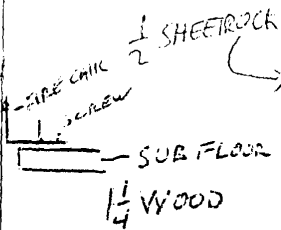 1/2 SHEETROCK
FIRE CAULK
SCREW
SUBFLOOR
1 1/4 WOOD